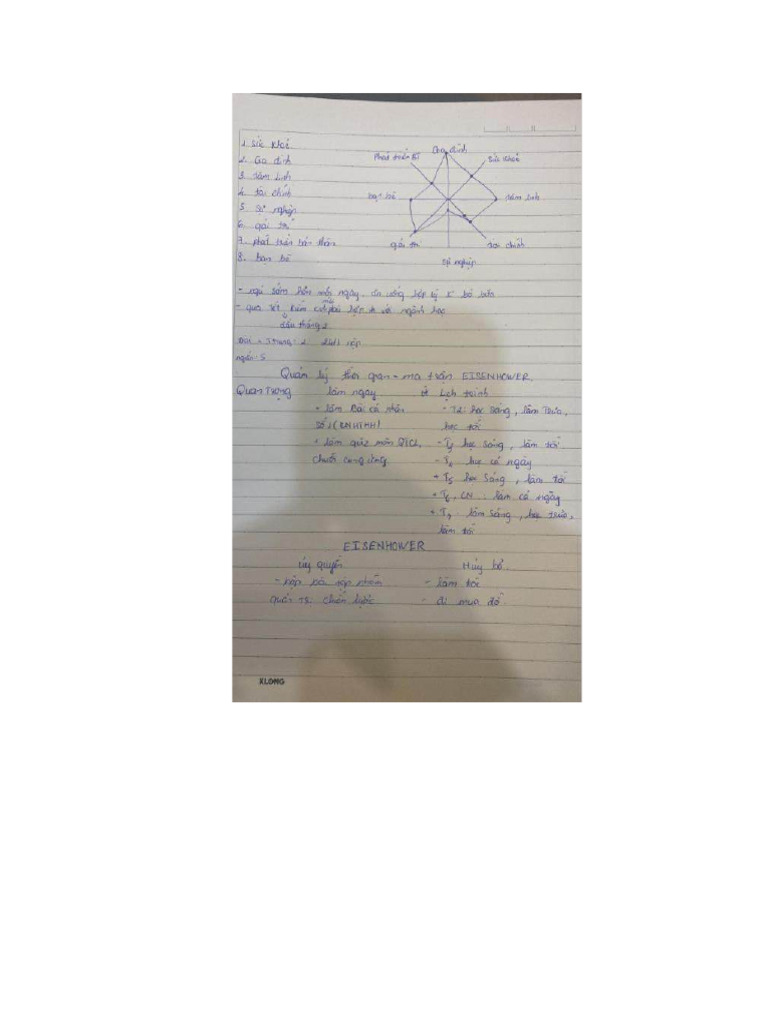 1. Sức khoẻ
2. Gia đình
3. Tâm linh
4. tài chính
5. Sự nghiệp
6. giải trí
7. phát triển bản thân
8. bạn bè
Gia đình
Phát triển BT
Sức khoẻ
bạn bè
tâm linh
giải trí
tài chính
Sự nghiệp
- ngủ sớm hơn mỗi ngày, ăn uống hợp lý k bỏ bữa
- qua Tết kiếm phù hợp và ngành học
đầu tháng 2
ngắn: 5
Quản lý thời gian = ma trận EISENHOWER.
Quan Trọng
làm ngay
Lịch trình
+ làm Bài cá nhân
số 1
+ làm quiz môn
chuỗi cung ứng
- T2: học sáng, làm trưa,
học tối
- T3 học sáng, làm tối
- T4 học cả ngày
+ T5 học sáng, làm tối
+ T6, CN: làm cả ngày
+ T7: làm sáng, trưa,
làm tối
EISENHOWER
Uỷ quyền
Huỷ bỏ.
- nộp bài
quản trị chiến lược
- làm tối
- đi mua đồ.
KLONG